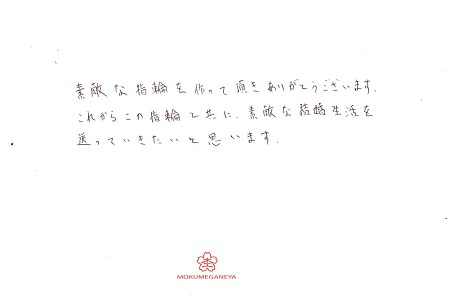 素敵な指輪を作って頂きありがとうございます.
これからこの指輪と共に、素敵な結婚生活を
送っていきたいと思います.
MOKUMEGANEYA